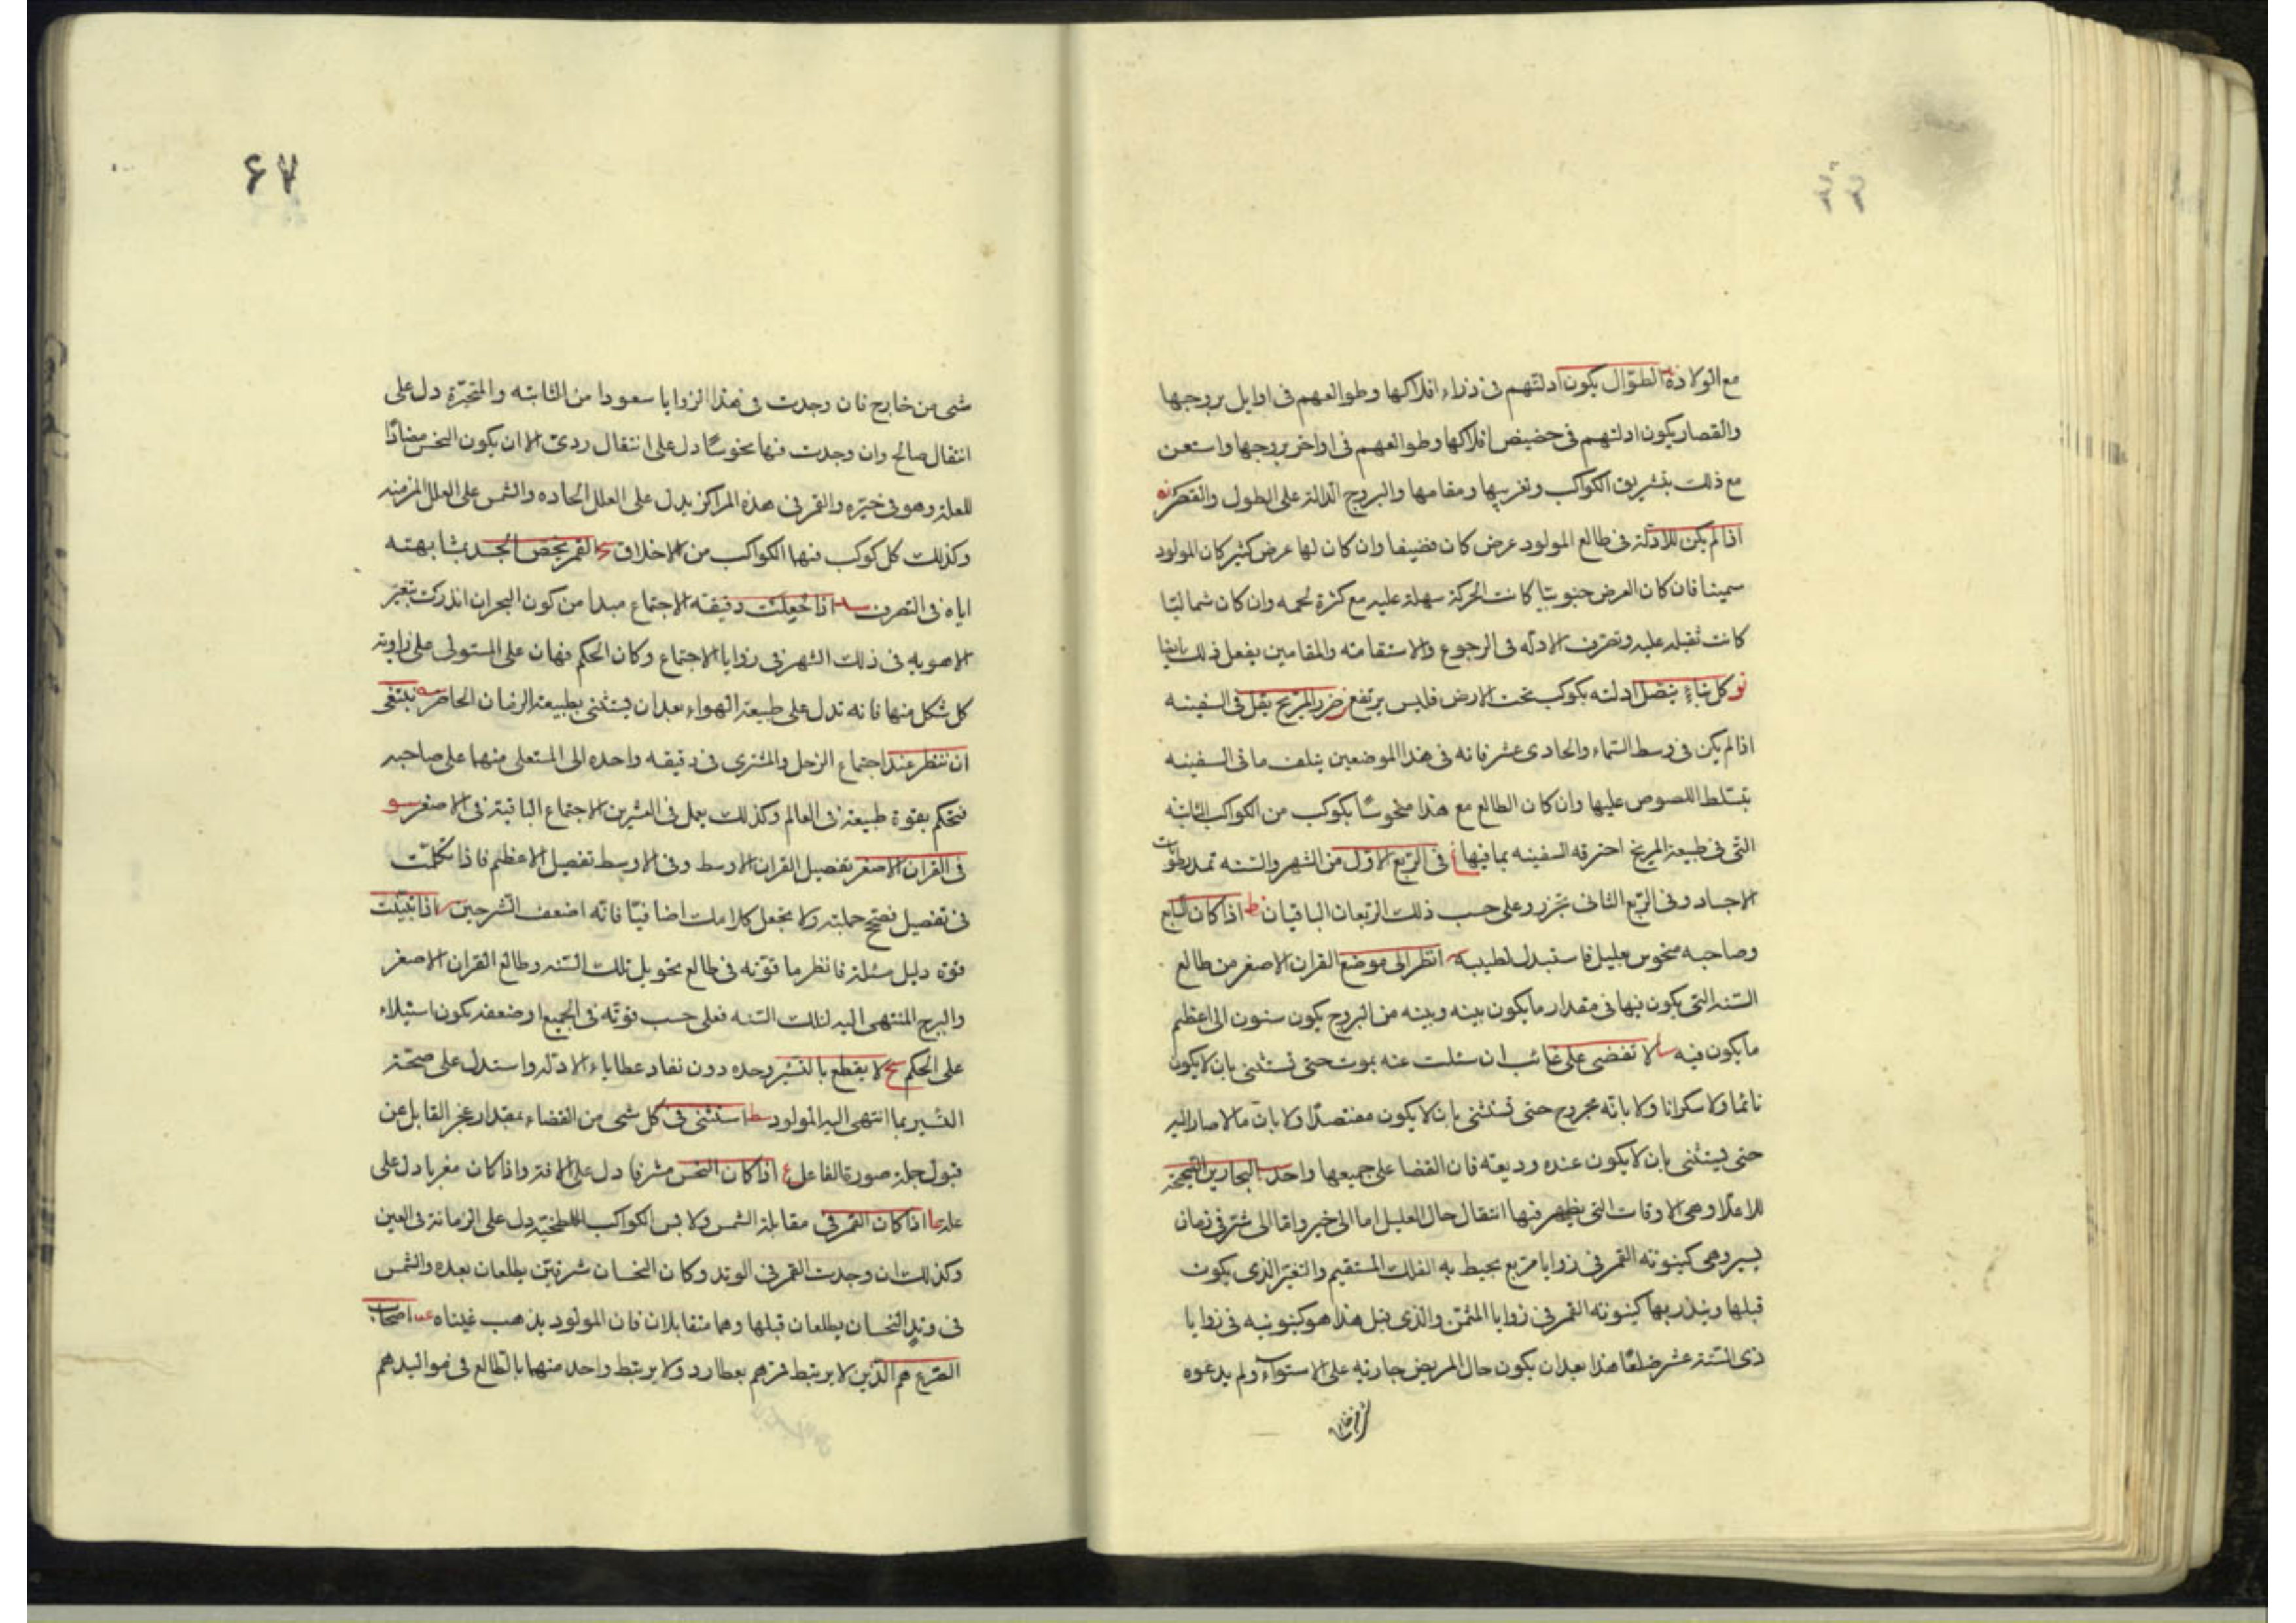 مع الولادة الطوال يكون ادلتهم فى ذراء افلاكها وطوالعهم فى اوايل بروجها
والقصار يكون ادلتهم فى حضيض افلاكها وطوالعهم فى اواخر بروجها واستعن
مع ذلك بتشريق الكواكب وتغريبها ومقامها والبروج الدالة على الطول والقصر نه
اذا لم يكن للادلة فى طالع المولود عرض كان قضيفا وان كان لها عرض كثير كان المولود
سمينا فان كان العرض جنوبيا كانت الحركة سهلة عليه مع كثرة لحمه وان كان شماليا
كانت ثقيله عليه وتصرف الادله فى الرجوع والاستقامته والمقامين يفعل ذلك ايضا
نو كل بناء يتصل ادلته بكوكب تحت الارض فليس يرتفع نز ضرر المريخ يقل فى السفينه
اذا لم يكن فى وسط السماء والحادى عشر فانه فى هذا الموضعين يتلف ما فى السفينه
بتسلط اللصوص عليها وان كان الطالع مع هذا منحوسا بكوكب من الكواكب الثابته
التى فى طبيعة المريخ احترقه السفينه بما فيها فى الربع الاول من الشهر والسنه تمد رطوبات
الاجساد وفى الربع الثانى تجزر وعلى حسب ذلك الربعان الباقيان نط اذا كان السابع
وصاحبه منحوس بعليل فاستبدل لطيبه س انظر الى موضع القران الاصغر من طالع
السنه التى يكون فيها فى مقدار ما يكون بينه وبينه من البروج يكون سنون الى اعظم
ما يكون فيه سا لا تقضى على غائب ان سئلت عنه بموت حتى تستثنى بان لا يكون
نائما ولا سكرانا ولا بانه مجروح حتى تستثنى بان لا يكون مفتصدا ولا بان مالا صار اليه
حتى يستثنى بان لا يكون عنده وديعته فان القضا على جميعها واحد سب البحارين الصحيحة
للاعلا وهى الاوقات التى يظهر فيها انتقال حال العليل اما الى خير واما الى شر فى زمان
يسير وهى كينونته القمر فى زوايا مربع يحيط به الفلك المستقيم والتغير الذى يكون
قبلها وينذر بها كينونته القمر فى زوايا المثمن والذى قبل هذا هو كينونيه فى زوايا
ذى الستة عشر ضلعا هذا بعد ان يكون حال المريض جاريه على الاستواء ولم يدعوه
۶۷
شى من خارج فان وجدت فى هذا الزوايا سعودا من الثابته والمتحيرة دل على
انتقال صالح وان وجدت فيها نحوسا دل على انتقال ردى الا ان يكون النحس مضادا
للعلة وهو فى خيزه والقمر فى هذه المراكز يدل على العلل الحاده والشمس على العلل المزمنه
وكذلك كل كوكب فيها الكواكب من الاخلاق سج القمر يخص الجسد بمشابهته
اياه فى التصرف سد اذا جعلت دقيقه الاجتماع مبدا من كون البحران انذرك بتغير
الاهويه فى ذلك الشهر فى زوايا الاجتماع وكان الحكم فيهان على المستولى على زاويته
كل شكل منها فانه تدل على طبيعة الهواء بعد ان يستثنى بطبيعة الزمان الحاضر سه ينبغى
ان ننظر عند اجتماع الزحل والمشترى فى دقيقه واحده الى المستعلى منهما على صاحبه
فتحكم بقوة طبيعته فى العالم وكذلك يعمل فى العشرين الاجتماع الباقية فى الاصغر سو
فى القران الاصغر تفصيل القران الاوسط وفى الاوسط تفصيل الاعظم فاذا تكلمت
فى تفصيل فصحح جملته ولا تجعل كلامك اضافيا فانه اضعف الشرحين سز اذا تبينت
قوة دليل مسئلة فانظر ما قوته فى طالع تحويل تلك السنه وطالع القران الاصغر
والبرج المنتهى اليه لتلك السنه فعلى حسب قوته فى الجميع او ضعفه يكون استيلاء
على الحكم سح لا يقطع بالتسير وحده دون نفاد عطاياء الادله واستدل على صحته
التسير بما انتهى اليه المولود سط استثنى فى كل شى من القضاء بمقدار عجز القابل عن
قبول جملة صورة الفاعل ع اذا كان النحس مشرقا دل على الافة واذا كان مغربا دل على
علة عا اذا كان القمر فى مقابلة الشمس ولابس الكواكب اللطخية دل على الزمانة فى العين
وكذلك ان وجدت القمر فى الوتد وكان النحسان شرقيين يطلعان بعده والشمس
فى وتد النحسان يطلعان قبلها وهما متقابلان فان المولود يذهب عيناه عب اصحاب
الصرع هم الذين لا يرتبط قمرهم بعطارد ولا يرتبط واحد منهما بالطالع فى مواليدهم